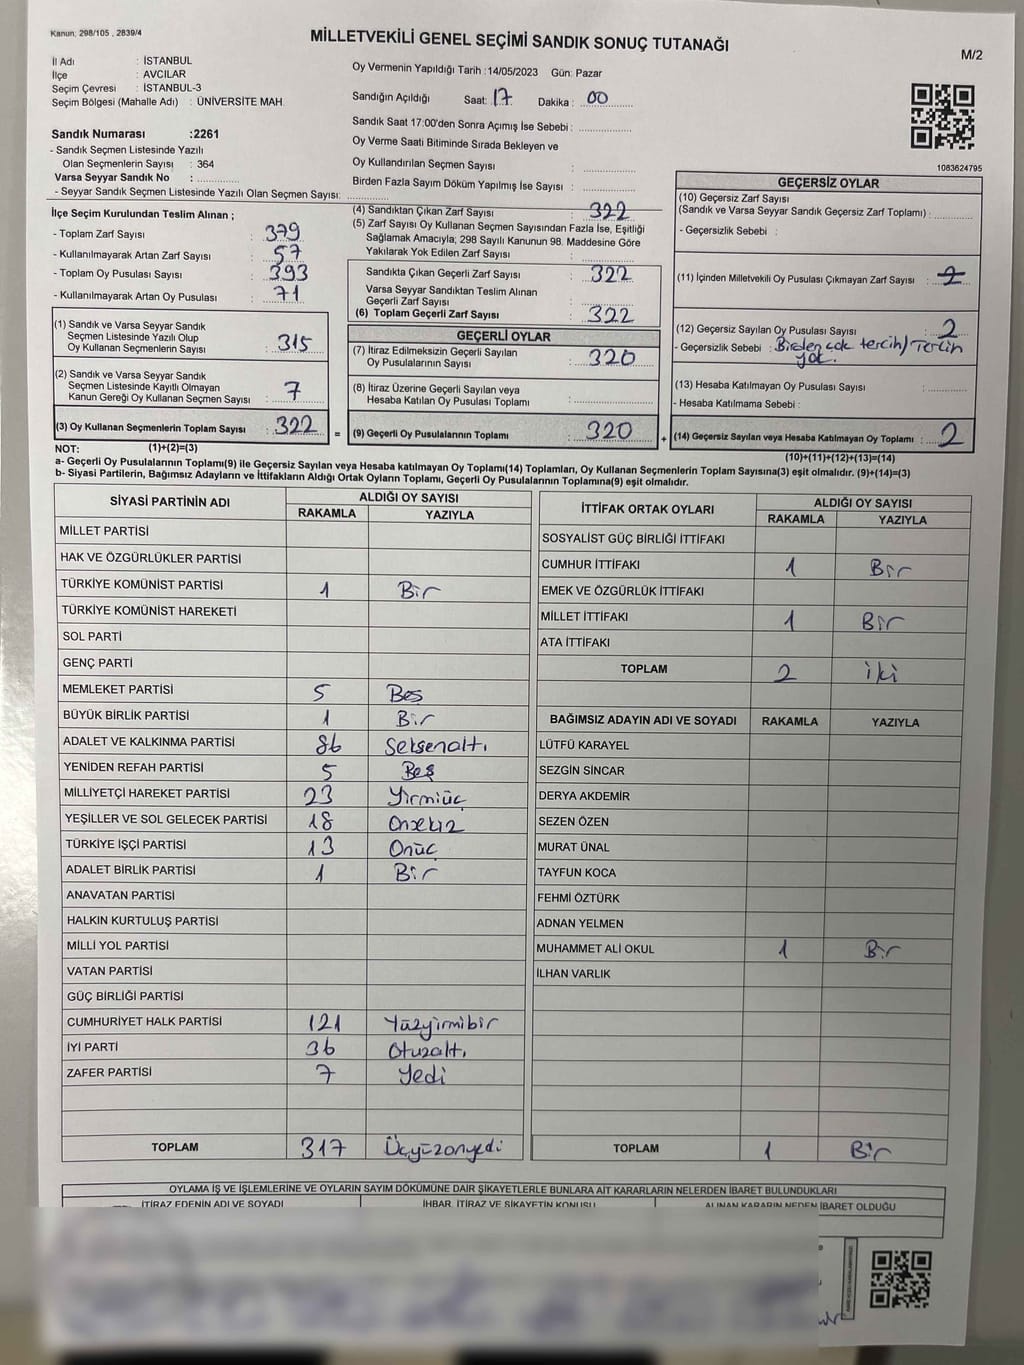 Kanun: 298/105 , 2839/4
MİLLETVEKİLİ GENEL SEÇİMİ SANDIK SONUÇ TUTANAĞI
M/2
İl Adı : İSTANBUL
İlçe : AVCILAR
Seçim Çevresi : İSTANBUL-3
Seçim Bölgesi (Mahalle Adı) : ÜNİVERSİTE MAH.
Sandık Numarası :2261
- Sandık Seçmen Listesinde Yazılı
Olan Seçmenlerin Sayısı : 364
Varsa Seyyar Sandık No :
- Seyyar Sandık Seçmen Listesinde Yazılı Olan Seçmen Sayısı:
Oy Vermenin Yapıldığı Tarih :14/05/2023 Gün: Pazar
Sandığın Açıldığı Saat: 17 Dakika : 00
Sandık Saat 17:00'den Sonra Açımış İse Sebebi :
Oy Verme Saati Bitiminde Sırada Bekleyen ve
Oy Kullandırılan Seçmen Sayısı :
Birden Fazla Sayım Döküm Yapılmış İse Sayısı :
1083624795
İlçe Seçim Kurulundan Teslim Alınan ;
- Toplam Zarf Sayısı : 379
- Kullanılmayarak Artan Zarf Sayısı : 57
- Toplam Oy Pusulası Sayısı : 393
- Kullanılmayarak Artan Oy Pusulası : 71
(1) Sandık ve Varsa Seyyar Sandık
Seçmen Listesinde Yazılı Olup
Oy Kullanan Seçmenlerin Sayısı : 315
(2) Sandık ve Varsa Seyyar Sandık
Seçmen Listesinde Kayıtlı Olmayan
Kanun Gereği Oy Kullanan Seçmen Sayısı : 7
(3) Oy Kullanan Seçmenlerin Toplam Sayısı : 322 =
(4) Sandıktan Çıkan Zarf Sayısı : 322
(5) Zarf Sayısı Oy Kullanan Seçmen Sayısından Fazla İse, Eşitliği
Sağlamak Amacıyla; 298 Sayılı Kanunun 98. Maddesine Göre
Yakılarak Yok Edilen Zarf Sayısı :
Sandıkta Çıkan Geçerli Zarf Sayısı : 322
Varsa Seyyar Sandıktan Teslim Alınan
Geçerli Zarf Sayısı :
(6) Toplam Geçerli Zarf Sayısı : 322
GEÇERLİ OYLAR
(7) İtiraz Edilmeksizin Geçerli Sayılan
Oy Pusulalarının Sayısı : 320
(8) İtiraz Üzerine Geçerli Sayılan veya
Hesaba Katılan Oy Pusulası Toplamı :
(9) Geçerli Oy Pusulalarının Toplamı : 320 +
GEÇERSİZ OYLAR
(10) Geçersiz Zarf Sayısı
(Sandık ve Varsa Seyyar Sandık Geçersiz Zarf Toplamı) :
- Geçersizlik Sebebi :
(11) İçinden Milletvekili Oy Pusulası Çıkmayan Zarf Sayısı :
(12) Geçersiz Sayılan Oy Pusulası Sayısı : 2
- Geçersizlik Sebebi : Birden çok tercih/Tercih
yok.
(13) Hesaba Katılmayan Oy Pusulası Sayısı :
- Hesaba Katılmama Sebebi :
(14) Geçersiz Sayılan veya Hesaba Katılmayan Oy Toplamı : 2
NOT: (1)+(2)=(3)
(10)+(11)+(12)+(13)=(14)
a- Geçerli Oy Pusulalarının Toplamı(9) ile Geçersiz Sayılan veya Hesaba katılmayan Oy Toplamı(14) Toplamları, Oy Kullanan Seçmenlerin Toplam Sayısına(3) eşit olmalıdır. (9)+(14)=(3)
b- Siyasi Partilerin, Bağımsız Adayların ve İttifakların Aldığı Ortak Oyların Toplamı, Geçerli Oy Pusulalarının Toplamına(9) eşit olmalıdır.
SİYASİ PARTİNİN ADI ALDIĞI OY SAYISI
RAKAMLA YAZIYLA
MİLLET PARTİSİ
HAK VE ÖZGÜRLÜKLER PARTİSİ
TÜRKİYE KOMÜNİST PARTİSİ 1 Bir
TÜRKİYE KOMÜNİST HAREKETİ
SOL PARTİ
GENÇ PARTİ
MEMLEKET PARTİSİ 5 Beş
BÜYÜK BİRLİK PARTİSİ 1 Bir
ADALET VE KALKINMA PARTİSİ 86 Seksenaltı
YENİDEN REFAH PARTİSİ 5 Beş
MİLLİYETÇİ HAREKET PARTİSİ 23 Yirmiüç
YEŞİLLER VE SOL GELECEK PARTİSİ 18 Onsekiz
TÜRKİYE İŞÇİ PARTİSİ 13 Onüç
ADALET BİRLİK PARTİSİ 1 Bir
ANAVATAN PARTİSİ
HALKIN KURTULUŞ PARTİSİ
MİLLİ YOL PARTİSİ
VATAN PARTİSİ
GÜÇ BİRLİĞİ PARTİSİ
CUMHURİYET HALK PARTİSİ 121 Yüzyirmibir
İYİ PARTİ 36 Otuzaltı
ZAFER PARTİSİ 7 Yedi
TOPLAM 317 Üçyüzonyedi
İTTİFAK ORTAK OYLARI ALDIĞI OY SAYISI
RAKAMLA YAZIYLA
SOSYALİST GÜÇ BİRLİĞİ İTTİFAKI
CUMHUR İTTİFAKI 1 Bir
EMEK VE ÖZGÜRLÜK İTTİFAKI
MİLLET İTTİFAKI 1 Bir
ATA İTTİFAKI
TOPLAM 2 iki
BAĞIMSIZ ADAYIN ADI VE SOYADI RAKAMLA YAZIYLA
LÜTFÜ KARAYEL
SEZGİN SİNCAR
DERYA AKDEMİR
SEZEN ÖZEN
MURAT ÜNAL
TAYFUN KOCA
FEHMİ ÖZTÜRK
ADNAN YELMEN
MUHAMMET ALİ OKUL 1 Bir
İLHAN VARLIK
TOPLAM 1 Bir
OYLAMA İŞ VE İŞLEMLERİNE VE OYLARIN SAYIM DÖKÜMÜNE DAİR ŞİKAYETLERLE BUNLARA AİT KARARLARIN NELERDEN İBARET BULUNDUKLARI
İTİRAZ EDENİN ADI VE SOYADI İHBAR, İTİRAZ VE ŞİKAYETİN KONUSU ALINAN KARARIN NEDEN İBARET OLDUĞU